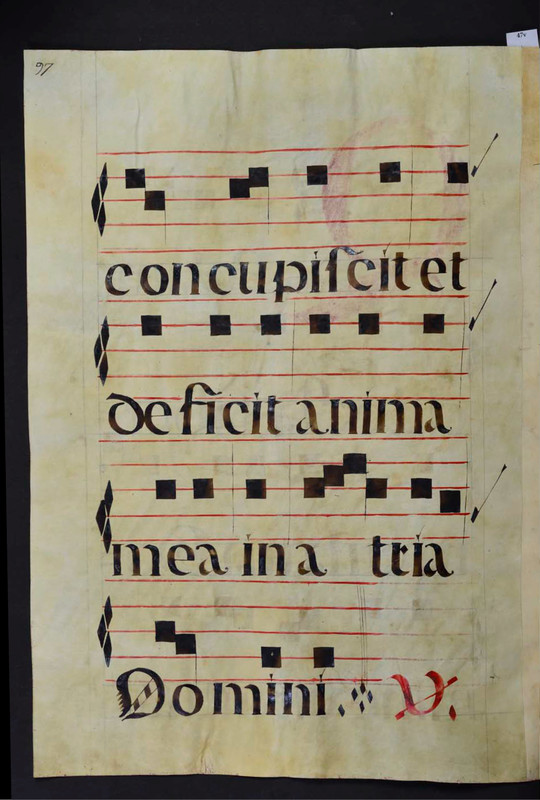 97
47v
concupiſcit et
deficit anima
mea in atria
Domini. V.